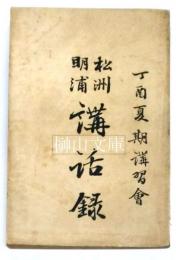 丁酉夏期講習會
松洲
明浦
講話録
榊山文庫